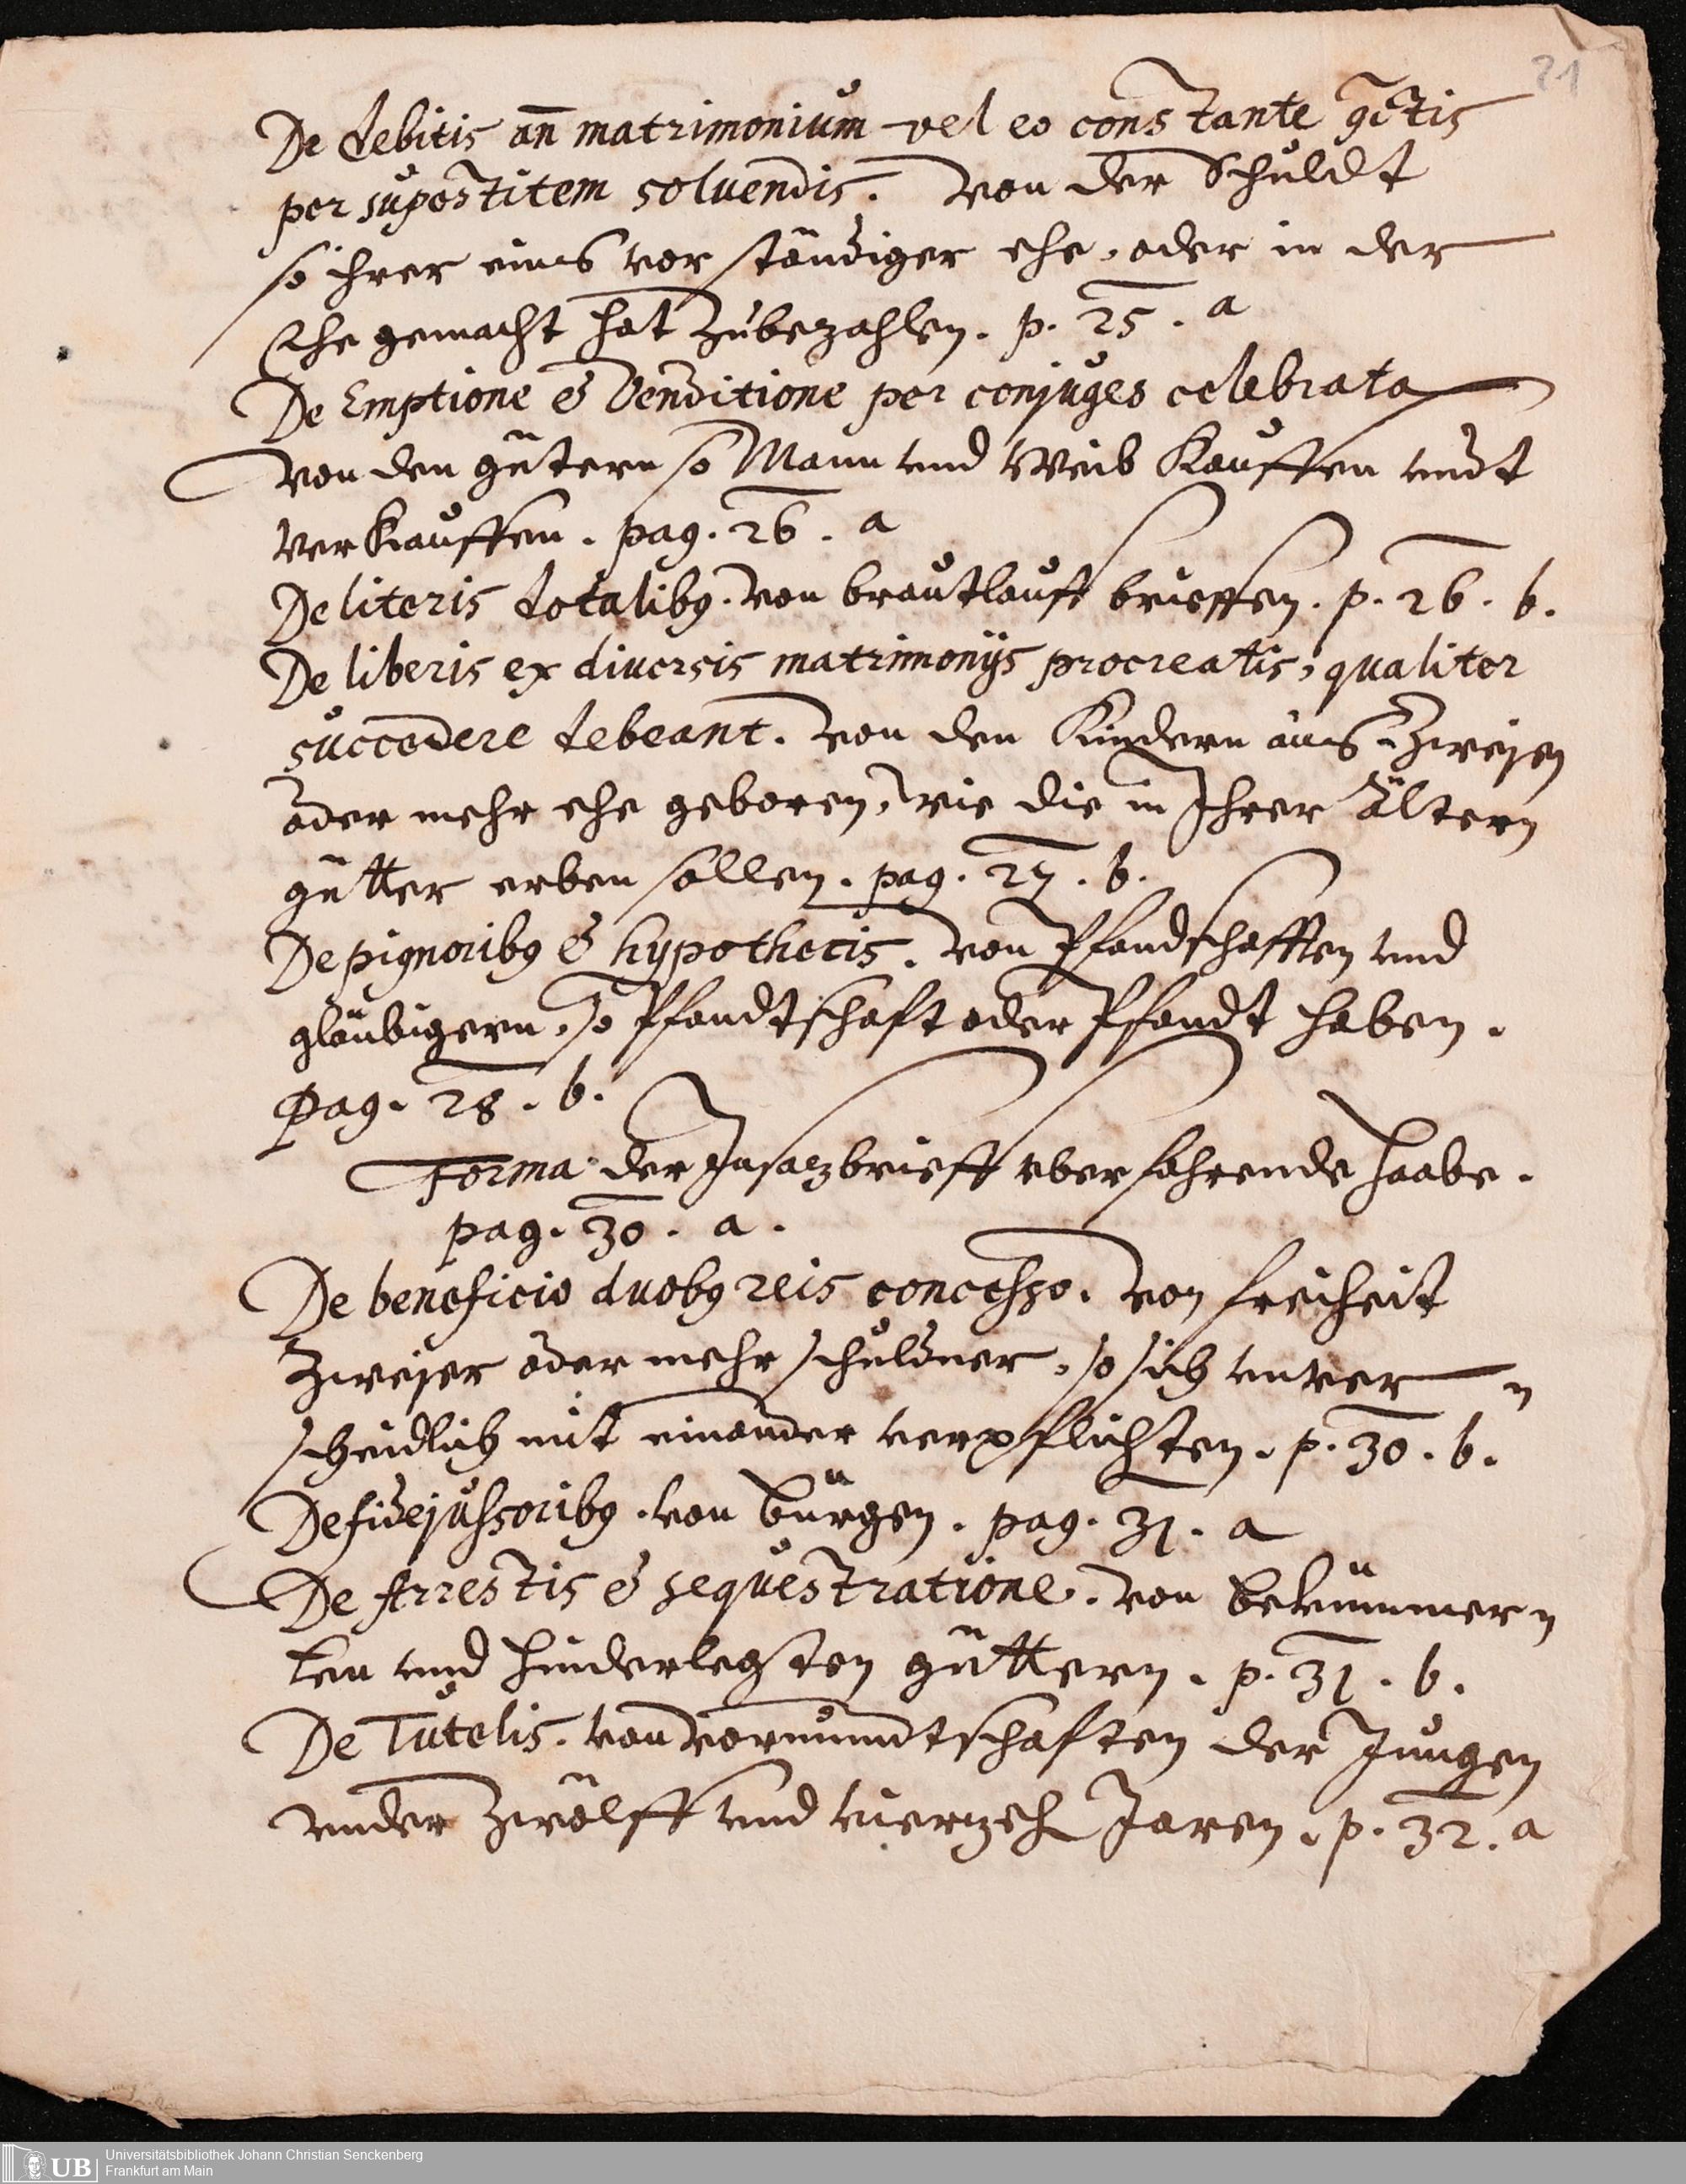 21
De debitis an̄ matrimonium vel eo constante gc̄tis
per supostitem soluendis. Von der Schuldt
so ihrer eins vor ständiger ehe, oder in der
Ehe gemacht hat Zubezahlen. p. 25. a
De Emptione & Venditione per conjuges celebrata
Von den gütern so Mann und Weib Kauffen undt
Verkauffen. pag. 26. a
De literis dotalibꝰ. Von brautlauft brieffen. p. 26. b.
De liberis ex diuersis matrimonijs procreatis, qualiter
succedere debeant. Von den Kindern aus Zweyen
oder mehr ehe geboren, wie die in Ihrer Ältern
gütter erben sollen. pag. 27. b.
De pignoribꝰ & hypothecis. Von Pfandschafften und
gläubigern, so Pfandtschaft oder Pfandt haben.
Pag. 28. b.
Forma der Insatzbrieff vber fahrende haabe.
pag. 30. a.
De beneficio duobꝰ reis concesso. Von freiheit
Zweyer oder mehr schuldner, so sich unver-
scheidlich mit einander verpflichten. p. 30. b.
De fidejussoribꝰ. Von bürgen. pag. 31. a
De Arrestis & sequestratione. Von bekümmer
ten und hinderlegten güttern. p. 31. b.
De Tutelis. Von Vormundtschaften der Jungen
under Zwölff und vierzeh Jaren. p. 32. a
Universitätsbibliothek Johann Christian Senckenberg
UB Frankfurt am Main